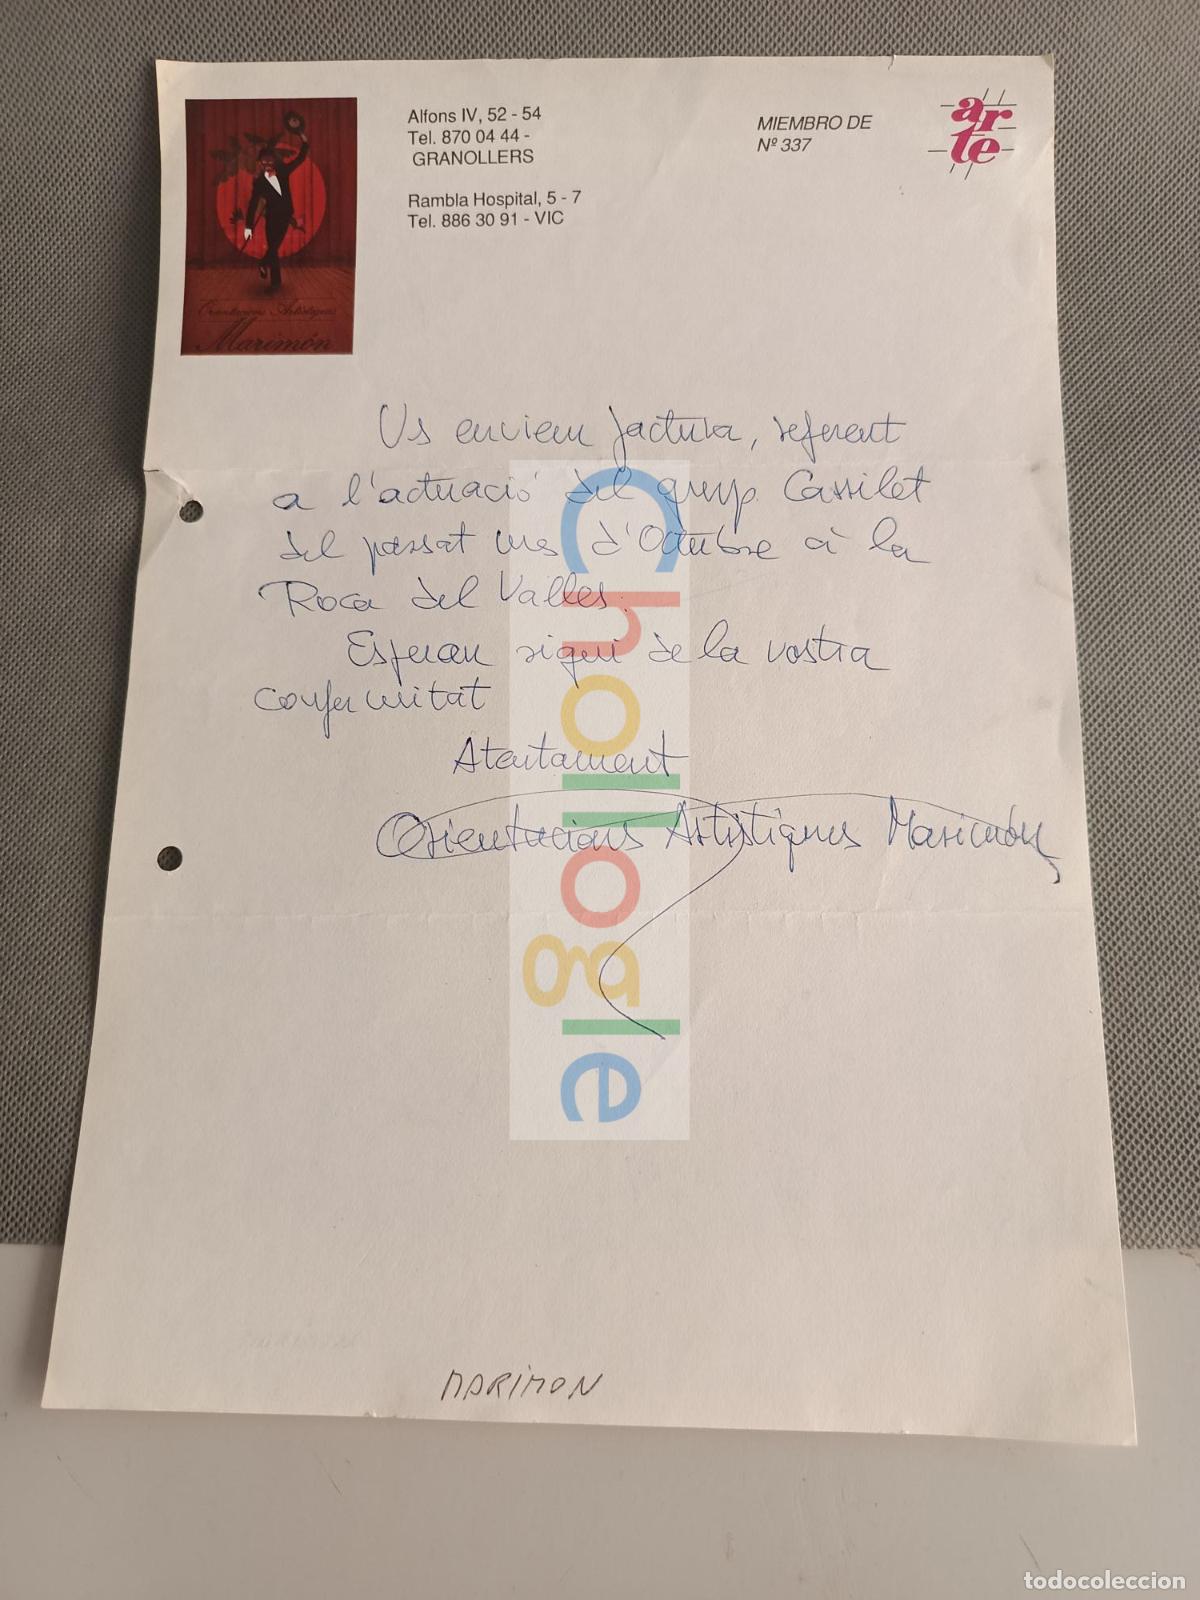 Alfons IV, 52 - 54
Tel. 870 04 44 -
GRANOLLERS
Rambla Hospital, 5 - 7
Tel. 886 30 91 - VIC
MIEMBRO DE
Nº 337
arte
Orientacions Artístiques
Marimón
Us enviem factura, referent
a l'actuació del grup Cassilet
del passat mes d'Octubre a la
Roca del Valles.
Esperan sigui de la vostra
conformitat
Atentament
Orientacions Artístiques Marimón
MARIMON
Chollogle
todocoleccion